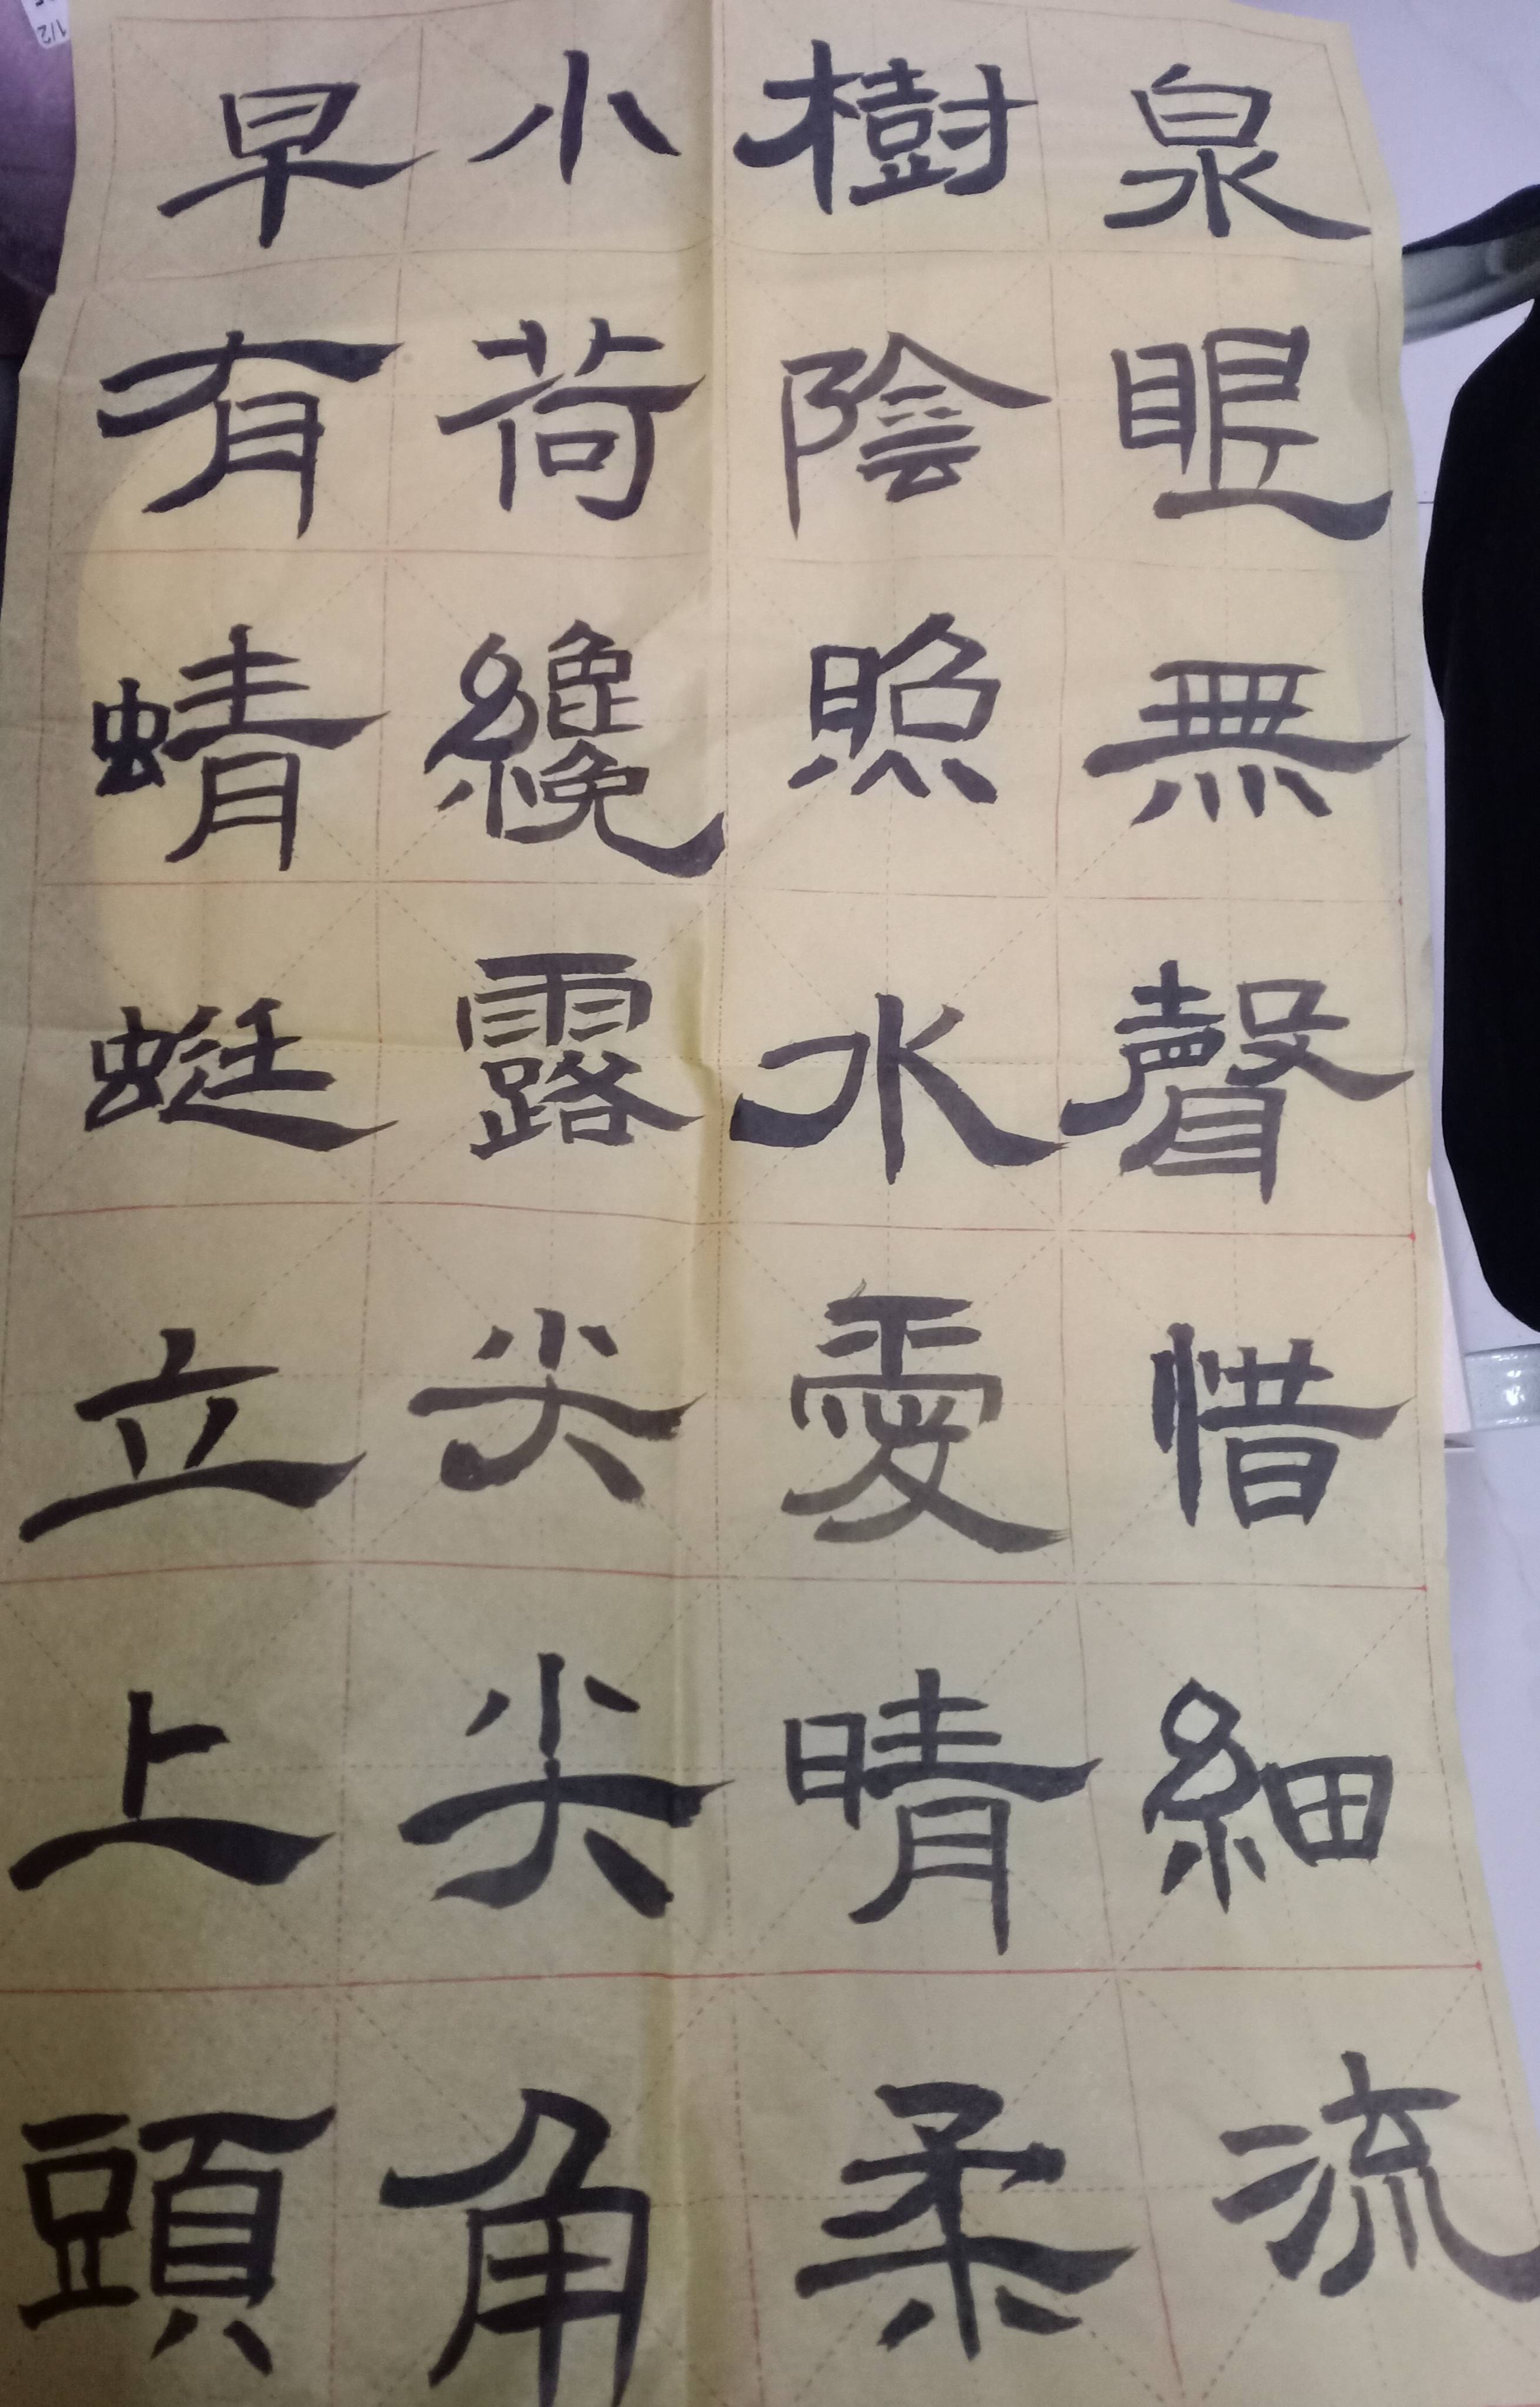 泉眼無聲惜細流
樹陰照水愛晴柔
小荷纔露尖尖角
早有蜻蜓立上頭
1/2